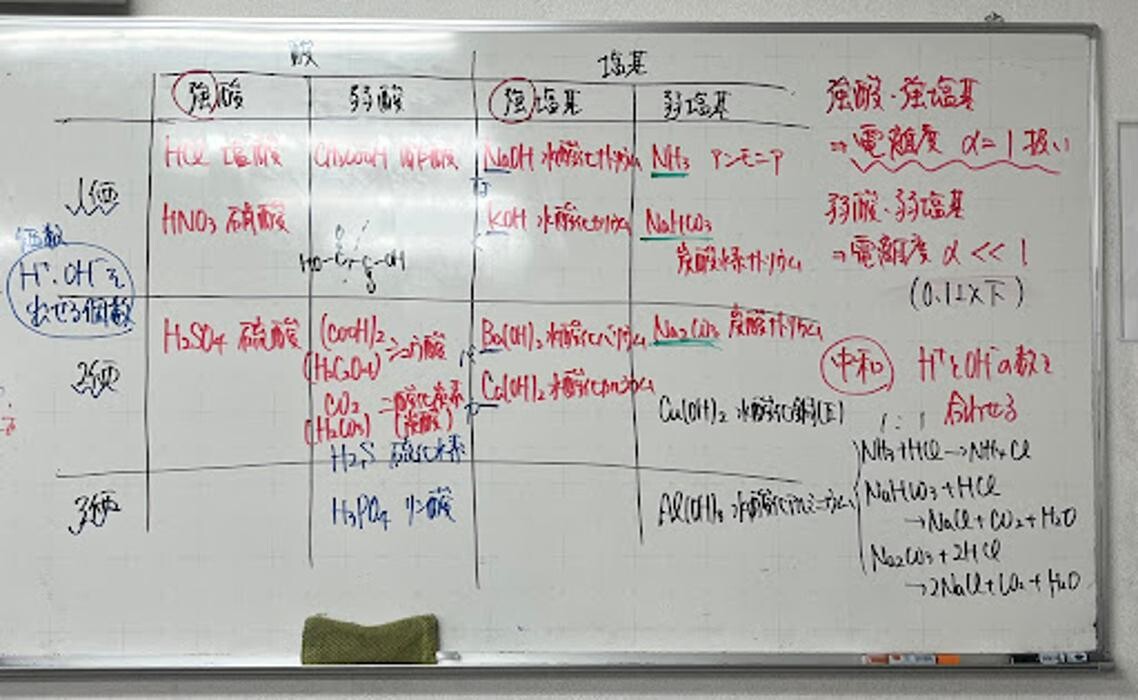 酸 塩基
強酸 弱酸 強塩基 弱塩基
1価
HCl 塩酸 CH3COOH 酢酸 NaOH 水酸化ナトリウム NH3 アンモニア
HNO3 硝酸 KOH 水酸化カリウム NaHCO3
炭酸水素ナトリウム
HO-C-C-OH
価数
H⁺・OH⁻を
出せる個数
2価
H2SO4 硫酸 (COOH)2 シュウ酸 Ba(OH)2 水酸化バリウム Na2CO3 炭酸ナトリウム
(H2C2O4)
CO2 二酸化炭素 Ca(OH)2 水酸化カルシウム
(H2CO3) (炭酸) Cu(OH)2 水酸化銅(II)
H2S 硫化水素
3価
H3PO4 リン酸 Al(OH)3 水酸化アルミニウム
強酸・強塩基
⇒電離度 α=1扱い
弱酸・弱塩基
⇒電離度 α << 1
(0.1以下)
中和 H⁺とOH⁻の数を
1:1 合わせる
NH3+HCl→NH4Cl
NaHCO3+HCl
→NaCl+CO2+H2O
Na2CO3+2HCl
→2NaCl+CO2+H2O